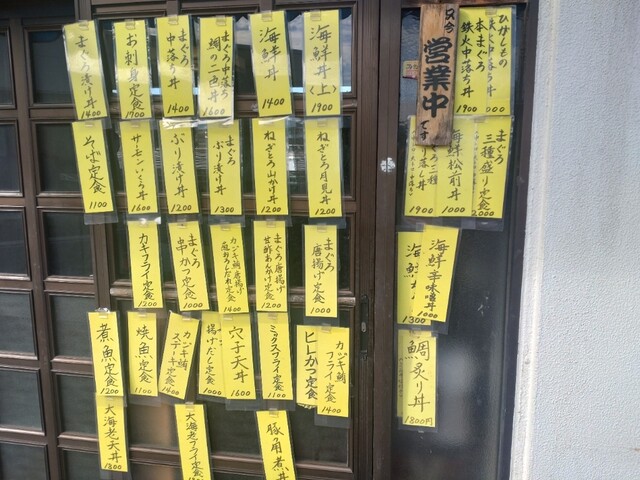 まぐろ漬け丼
1400
お刺身定食
1900
まぐろ
中落ち丼
1400
まぐろ中落ち
鯛の二色丼
1600
海鮮丼
1400
海鮮丼〈上〉
1900
只今
営業中
です
ひがしもの
本まぐろ
鉄火中落ち丼
1900
そば定食
1100
サーモンいくら丼
1600
ぶり漬け丼
1200
まぐろ
ぶり漬け丼
1300
ねぎとろ山かけ丼
1200
ねぎとろ月見丼
1200
1900
海鮮松前丼
1000
まぐろ
三種盛り定食
2000
カキフライ定食
1100
まぐろ
串かつ定食
1000
カジキ鮪唐揚げ
1400
まぐろ唐揚げ
甘酢あんかけ定食
1200
まぐろ
唐揚げ定食
1000
1300
海鮮辛味噌丼
1000
煮魚定食
1200
焼魚定食
1100
カジキ鮪
ステーキ定食
1400
揚げだし定食
1000
穴子天丼
1600
ミックスフライ定食
1100
ヒレかつ定食
カジキ鮪
フライ定食
1400
鯛炙り丼
1800円
大海老天丼
1800
大海老フライ定食
豚角煮丼